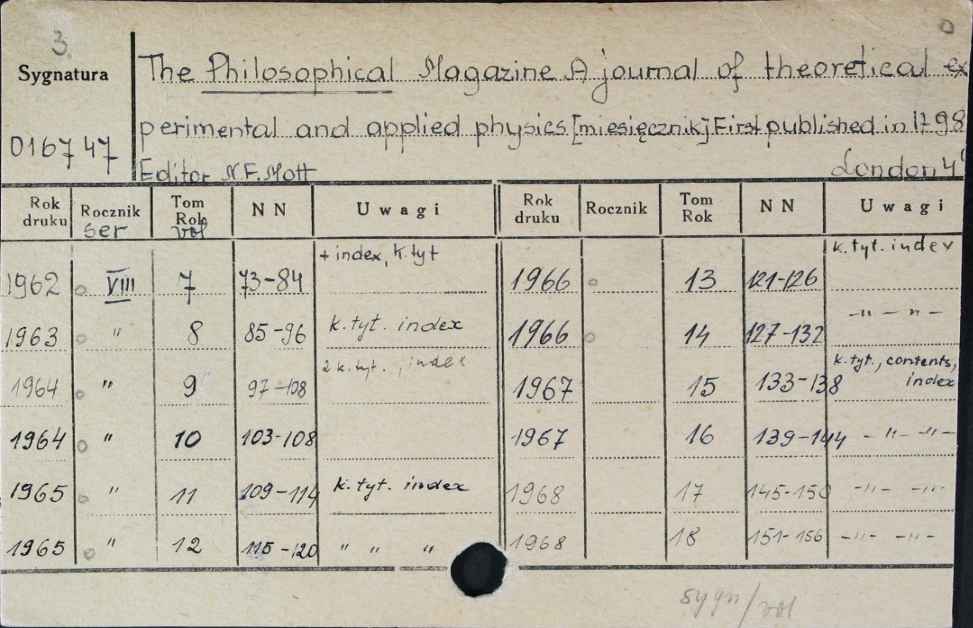 3.
Sygnatura
016747
The Philosophical Magazine A journal of theoretical ex
perimental and applied physics [miesięcznik] First published in 1798
Editor N.F. Mott London 4°
Rok druku Rocznik ser Tom Rok vol NN Uwagi Rok druku Rocznik Tom Rok NN Uwagi
1962 VIII 7 73-84 + index, k.tyt 1966 13 121-126 k.tyt. index
1963 " 8 85-96 k.tyt. index 1966 14 127-132 -"- -"-
1964 " 9 97-108 2 k.tyt., index 1967 15 133-138 k.tyt., contents, index
1964 " 10 103-108 1967 16 139-144 -"- -"-
1965 " 11 109-114 k.tyt. index 1968 17 145-150 -"- -"-
1965 " 12 115-120 " " " 1968 18 151-156 -"- -"-
sygn/vol